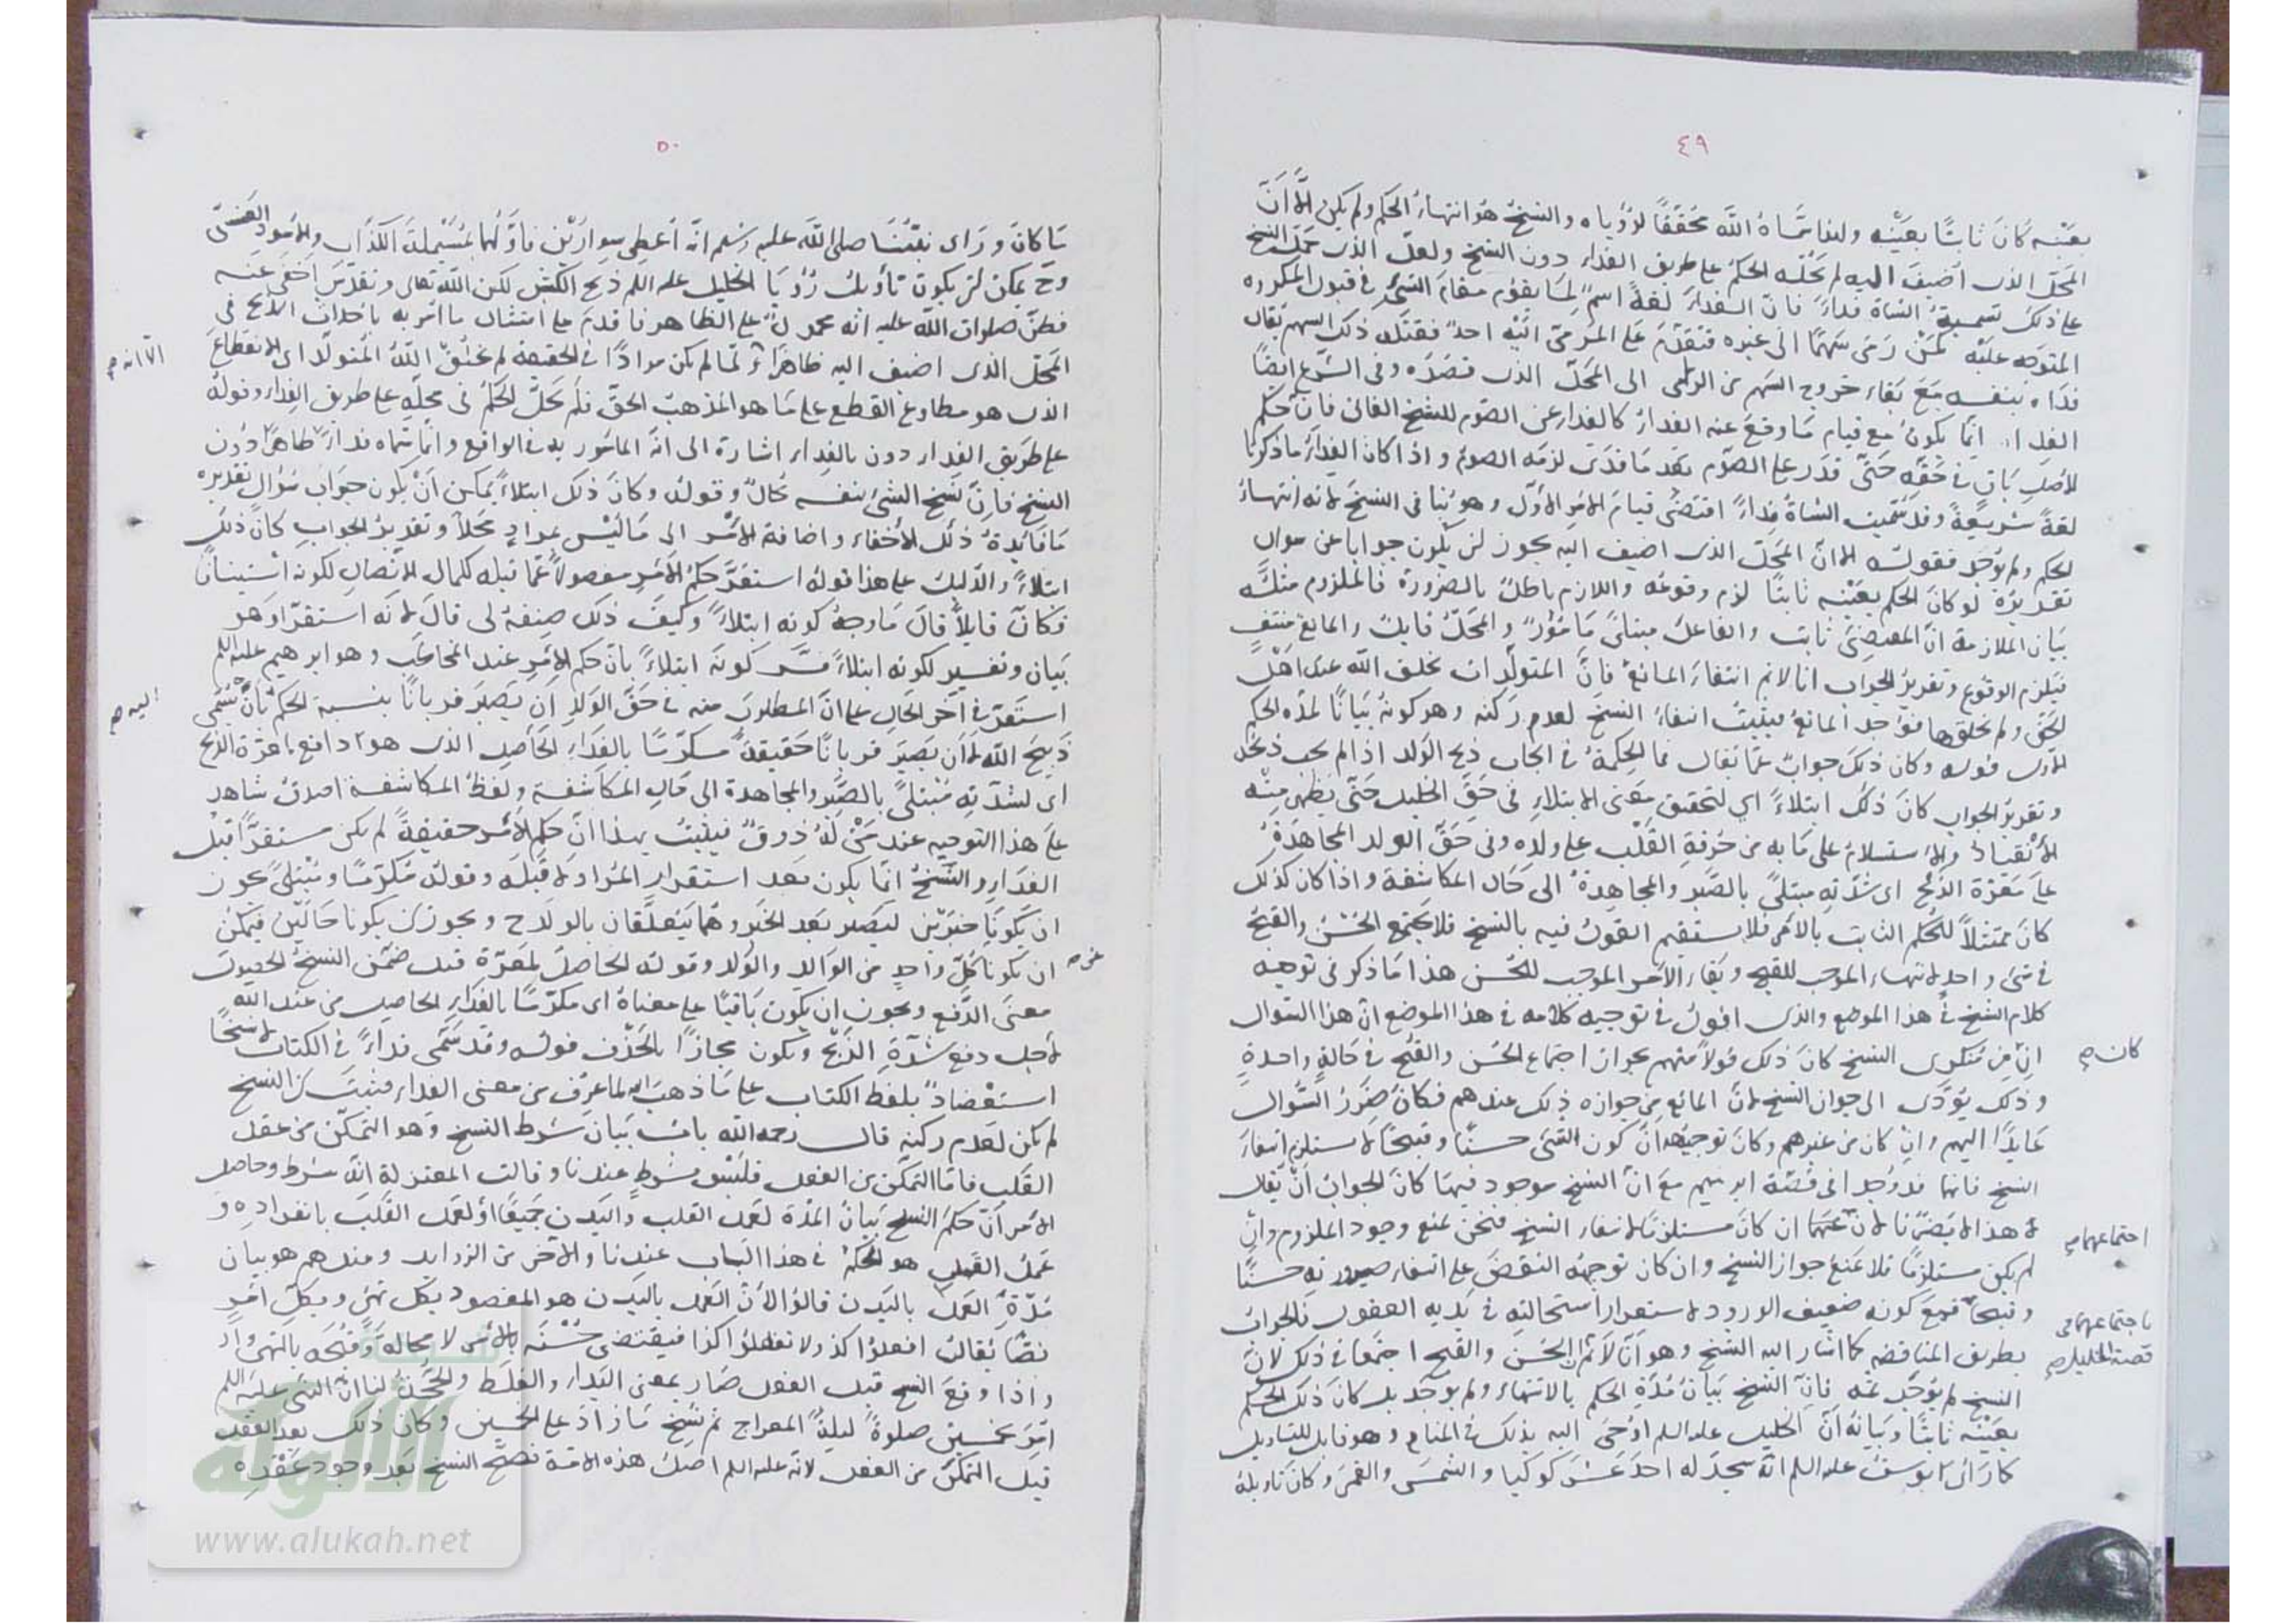 ٤٩
بعينه كان ثابتًا بعينه ولهذا سماه الله محققًا لرؤياه والنسخ هو انتهاء الحكم ولم يكن الا ان
المحل الذى اضيف اليه لم يحله الحكم على طريق الفداء دون النسخ ولعل الذى حمل الشيخ
على ذلك تسمية الشاة فداءً فان الفداء لغةً اسم لما يقوم مقام الشئ في قبول المكروه
المتوجه عليه كمن رمى سهمًا الى غيره فتقدم على المرمى اليه احد فقتله ذلك السهم يقال
فداه بنفسه مع بقاء خروج السهم من الرامى الى المحل الذى قصده وفى الشرع ايضًا
الفداء انما يكون مع قيام ما وقع عنه الفداء كالفداء عن الصوم للشيخ الفانى فان حكم
الاصل باق في حقه حتى قدر على الصوم بعد ما فدى لزمه الصوم واذا كان الفداء ما ذكرنا
لغةً شريعةً وقد سميت الشاة فداءً اقتضى قيام الامر الاول وهو ينافى النسخ لانه انتهاء
الحكم ولم يوجد فقوله الا ان المحل الذى اضيف اليه يجوز ان يكون جوابا عن سوال
تقديره لو كان الحكم بعينه ثابتًا لزم وقوعه واللازم باطل بالضرورة فالملزوم مثله
بيان الملازمة ان المقتضى ثابت والفاعل مبتلىً مامور والمحل قابل والمانع منتف
فيلزم الوقوع وتقرير الجواب انا لا نم انتفاء المانع فان المتولدات بخلق الله عند اهل
الحق ولم يخلقها فوجد المانع فيثبت انتفاء النسخ لعدم ركنه وهو كونه بيانًا لمدة الحكم
الاول قوله وكان ذلك جواب عما يقال فما الحكمة في ايجاب ذبح الولد اذا لم يجب ذبحه
وتقرير الجواب كان ذلك ابتلاءً اى لتحقيق معنى الابتلاء فى حق الخليل حتى يظهر منه
الانقياد والاستسلام على ما به من حرقة القلب على ولده وفى حق الولد المجاهدة
على معرة الذبح اى شدته مبتلىً بالصبر والمجاهدة الى حال المكاشفة واذا كان كذلك
كان ممتثلاً للحكم الثابت بالامر فلا يستقيم القول فيه بالنسخ فلا يجتمع الحسن والقبح
في شئ واحد لانتهاء الموجب للقبح وبقاء الامر الموجب للحسن هذا ما ذكر فى توجيه
كلام الشيخ في هذا الموضع والذى اقول في توجيه كلامه في هذا الموضع ان هذا السوال
ان من منكرى النسخ كان ذلك قولاً منهم بجواز اجتماع الحسن والقبح في حالة واحدة
كان صح
وذلك يؤدى الى جواز النسخ لان المانع من جوازه ذلك عندهم فكان ضرر السوال
عايدًا اليهم وان كان من غيرهم وكان توجيهه ان كون الشئ حسنًا وقبيحًا لا يستلزم انتفاء
النسخ فانهما قد وجدا فى قصة ابرهيم مع ان النسخ موجود فيها كان الجواب ان يقال
هذا لا يضرنا لان ان كان مستلزمًا لانتفاء النسخ فنحن نمنع وجود الملزوم وان
اجتماعهما صح
لم يكن مستلزمًا فلا يمنع جواز النسخ وان كان توجيه النقض على انتفاء صيرورته حسنًا
وقبيحًا فمع كونه ضعيف الورود لاستقرار استحالته في بديه العقول فالجواب
باجتماعهما فى
قصة الخليل صح
بطريق المناقضه كما اشار اليه الشيخ وهو انا لا نم ان الحسن والقبح اجتمعا فى ذلك لان
النسخ لم يوجد ثمه فان النسخ بيان مدة الحكم بالانتهاء ولم يوجد بل كان ذلك الحكم
بعينه ثابتًا وبيانه ان الخليل عليه السلم اوحى اليه بذلك فى المنام وهو قابل للتاويل
كما راى يوسف عليه السلم انه سجد له احد عشر كوكبا والشمس والقمر وكان تاويله
٥٠
ما كان وراى نبينا صلى الله عليه وسلم انه اعطى سوارين فاولهما بمسيلمة الكذاب والاسود العنسى
وح يمكن ان يكون تاويل رؤيا الخليل عليه السلم ذبح الكبش لكن الله تعالى وتقدس اخفى عنه
فظن صلوات الله عليه انه محمول على الظاهر فاقدم على امتثال ما امر به باحداث الذبح فى
المحل الذى اضيف اليه ظاهرًا لما لم يكن مرادًا في الحقيقة لم يخلق الله المتولد اى الانقطاع
الا انه صح
الذى هو مطاوع القطع على ما هو المذهب الحق فلم يحل الحكم فى محله على طريق الفداء وقوله
على طريق الفداء دون بالفداء اشارة الى ان المامور به في الواقع وانما سماه فداءً ظاهرًا دون
النسخ فان نسخ الشئ بنفسه محال وقوله وكان ذلك ابتلاءً يمكن ان يكون جواب سؤال تقديره
ما فايدة ذلك الاخفاء واضافة الامر الى ما ليس بمراد محلاً وتقرير الجواب كان ذلك
ابتلاءً والدليل على هذا قوله استقر حكم الامر مفصولاً عما قبله لكمال الاتصال لكونه استينافًا
فكان قايلاً قال ما وجه كونه ابتلاءً وكيف ذلك صفه لى قال لانه استقر او هو
بيان وتفسير لكونه ابتلاءً فسر كونه ابتلاءً بان حكم الامر عند المخاطب وهو ابرهيم عليه السلم
استقر فى آخر الحال على ان المطلوب منه فى حق الولد ان يصير قربانًا بنسبة الحكم بان يسمى
اليه صح
ذبيح الله لا ان يصير قربانًا حقيقةً مكرمًا بالفداء الحاصل الذى هو دافع لمعرة الذبح
اى لشدته مبتلىً بالصبر والمجاهدة الى حال المكاشفة ولفظ المكاشفة اصدق شاهد
على هذا التوجيه عند من له ذوق فيثبت بهذا ان حكم الامر حقيقةً لم يكن مستقرًا قبل
الفداء والنسخ انما يكون بعد استقرار المراد لا قبله وقوله مكرمًا ومبتلىً يجوز
ان يكونا خبرين ليصير بعد الخبر وهما يتعلقان بالولد ح ويجوز ان يكونا حالين فيمكن
ان يكونا كل واحد من الوالد والولد وقوله الحاصل لمعرة قيل ضمن النسخ الحصول
عن صح
معنى الدفع ويجوز ان يكون باقيًا على معناه اى مكرمًا بالفداء الحاصل من عند الله
لاجل دفع شدة الذبح ويكون مجازًا بالحذف قوله وقد سمى فداءً في الكتاب لا نسخًا
استعضاد بلفظ الكتاب على ما ذهب اليه لما عرف من معنى الفداء فثبت ان النسخ
لم يكن لعدم ركنه قال رحمه الله باب بيان شرط النسخ وهو التمكن من عقد
القلب فاما التمكن من الفعل فليس بشرط عندنا وقالت المعتزلة انه شرط وحاصل
الامر ان حكم النسخ بيان المدة لعمل القلب والبدن جميعًا او لعمل القلب بانفراده و
عمل القلب هو المحكم في هذا الباب عندنا والآخر من الزوايد وعندهم هو بيان
مدة العمل بالبدن قالوا لان العمل بالبدن هو المقصود بكل نهى وبكل امر
نصًا يقال افعلوا كذا ولا تفعلوا كذا فيقتضى حسنه بالامر لا محالة وقبحه بالنهى
واذا وقع النسخ قبل الفعل صار بمعنى البداء والغلط والحجة لنا ان النبى عليه السلم
امر بخمسين صلوةً ليلة المعراج ثم نسخ ما زاد على الخمس وكان ذلك بعد العقد
قبل التمكن من الفعل لانه عليه السلم اصل هذه الامة فصح النسخ بعد وجود عقده
شبكة
الألوكة
www.alukah.net